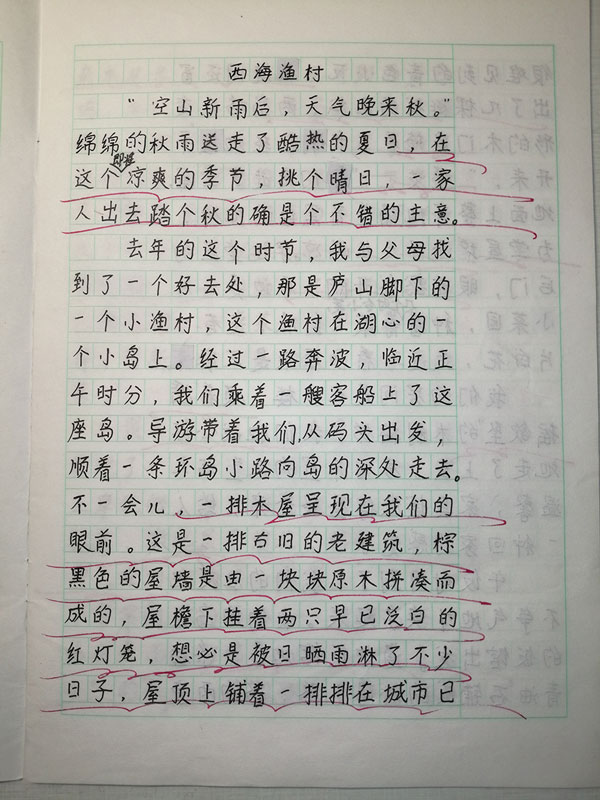 西海渔村
“空山新雨后，天气晚来秋。”
绵绵的秋雨送走了酷热的夏日，在
这个凉爽的季节，挑个晴日，一家
人出去踏个秋的确是个不错的主意。
去年的这个时节，我与父母找
到了一个好去处，那是庐山脚下的
一个小渔村，这个渔村在湖心的一
个小岛上。经过一路奔波，临近正
午时分，我们乘着一艘客船上了这
座岛。导游带着我们从码头出发，
顺着一条环岛小路向岛的深处走去。
不一会儿，一排木屋呈现在我们的
眼前。这是一排古旧的老建筑，棕
黑色的屋墙是由一块块原木拼凑而
成的，屋檐下挂着两只早已泛白的
红灯笼，想必是被日晒雨淋了不少
日子，屋顶上铺着一排排在城市已